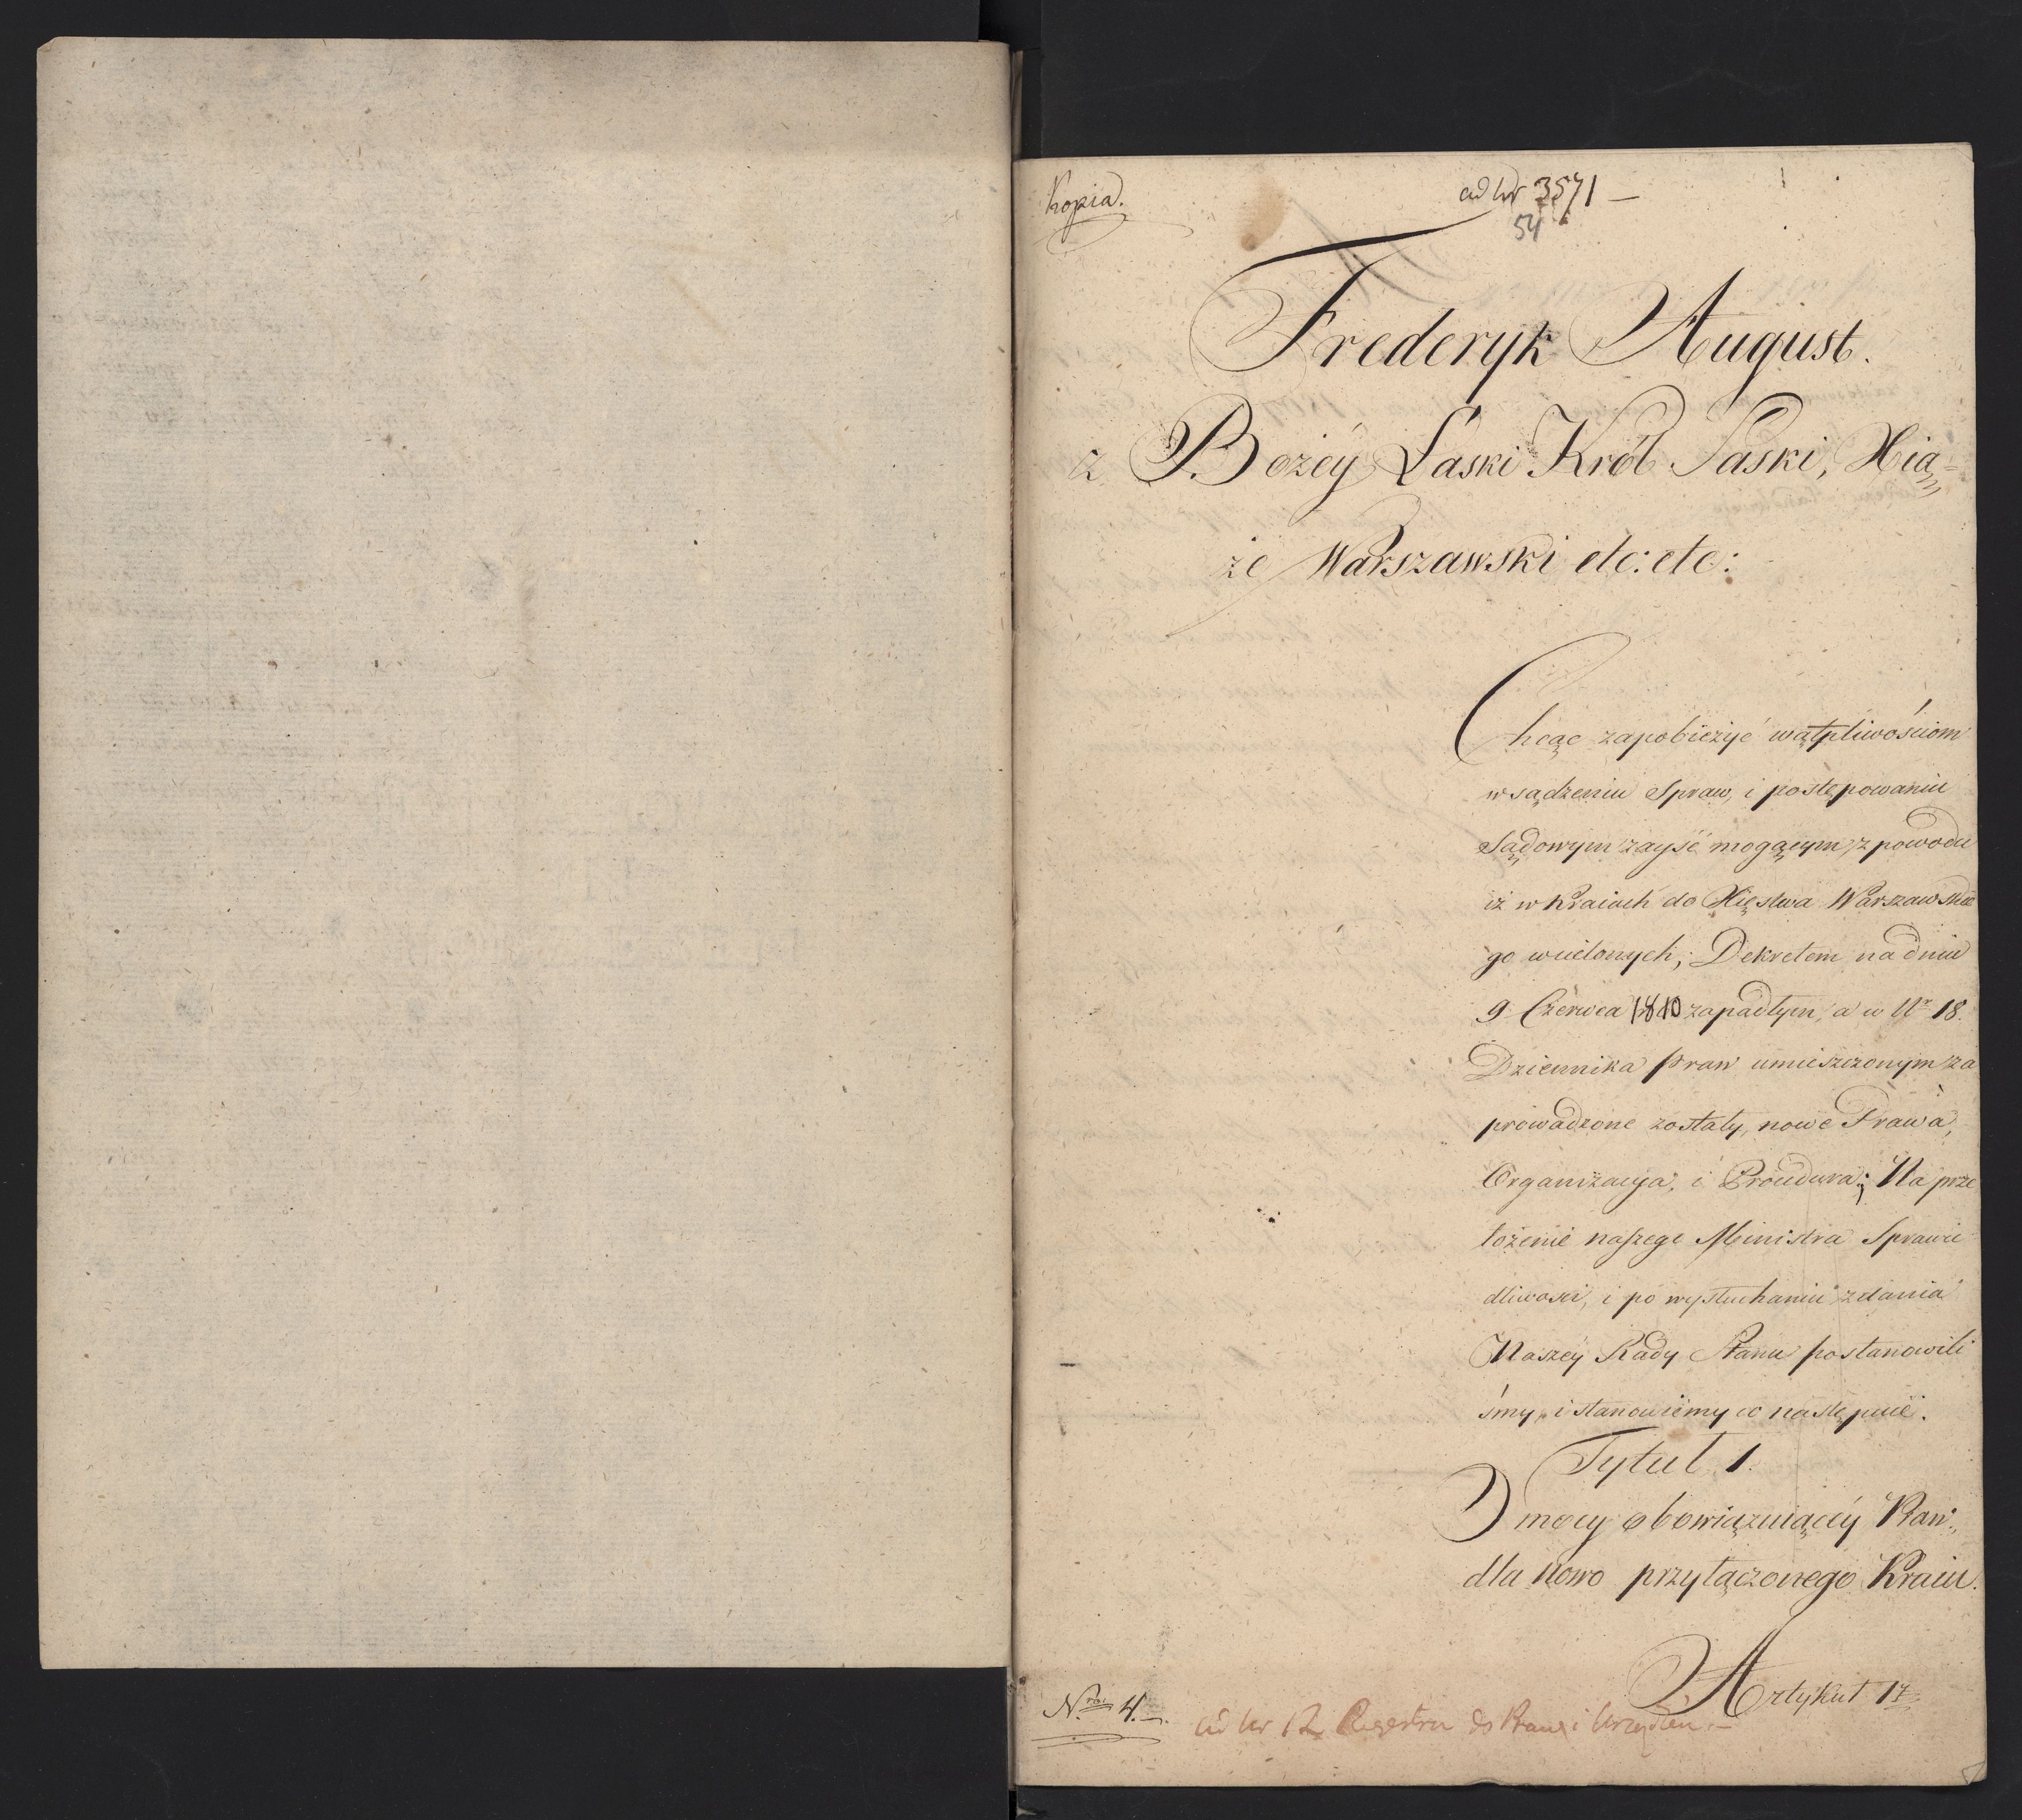 Kopia.
ad Nr 3571 —
54
Frederyk August.
z Bożéy Łaski Król Saski, Xią-
że Warszawski etc: etc:
Chcąc zapobieżyć wątpliwościom
w sądzeniu Spraw, i postępowaniu
Sądowym zayść mogącym, z powodu
iż w Kraiach do Xięstwa Warszawskie
go wcielonych, Dekretem na dniu
9 Czerwca 1810 zapadłym, a w Nr 18.
Dziennika praw umieszczonym za
prowadzone zostały, nowe Prawa,
Organizacya, i Procedura; Na prze
łożenie naszego Ministra Sprawie
dliwości, i po wysłuchaniu zdania
Naszey Rady Stanu postanowili
śmy, i stanowiemy co następuie.
Tytuł 1.
O mocy obowiązuiącéy Praw,
dla nowo przyłączonego Kraiu.
Artykuł 1y
Nro 4.
ad Nr 12 Regestru do Praw i Urządzeń. —